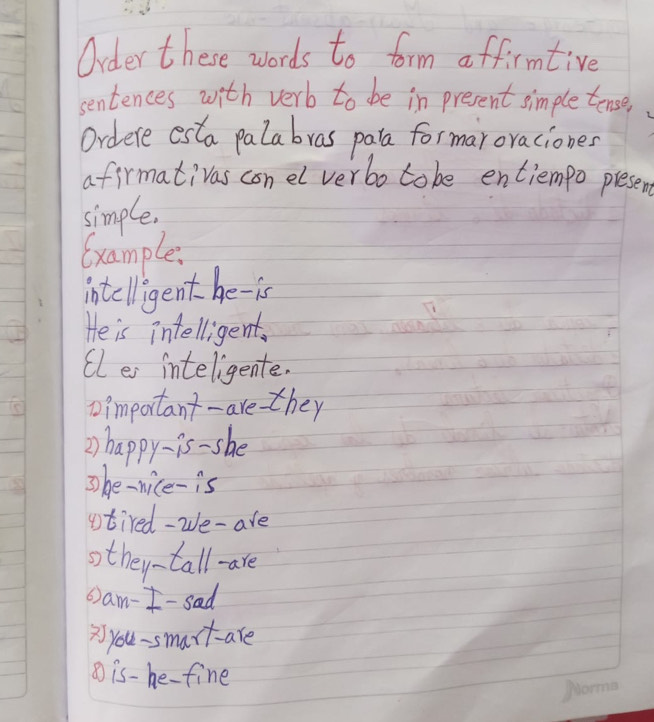 Order these words to form affirmtive
sentences with verb to be in present simple tense.
Ordere esta palabras para formar oraciones
afirmativas con el verbo tobe en tiempo present
simple.
Example:
intelligent-he-is
He is intelligent.
El es inteligente.
1) important-are-they
2) happy-is-she
3) he-nice-is
4) tired-we-are
5) they-tall-are
6) am-I-sad
7) you-smart-are
8) is-he-fine
Norma